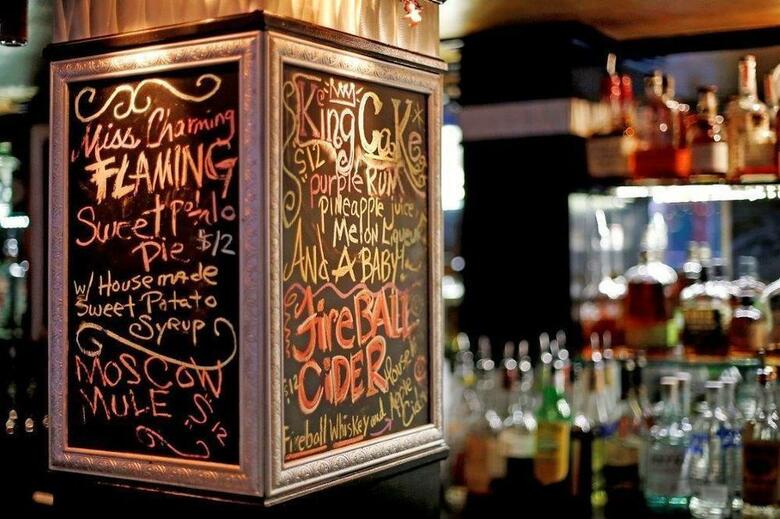 Miss Charming
FLAMING
Sweet Potato
Pie $12
w/ Housemade
Sweet Potato
Syrup
MOSCOW
MULES
King Cake
$12
purple RUM
pineapple juice
Melon Liqueur
AND A BABY!
FireBALL
CiDER
$12
Fireball Whiskey and House Apple Cider